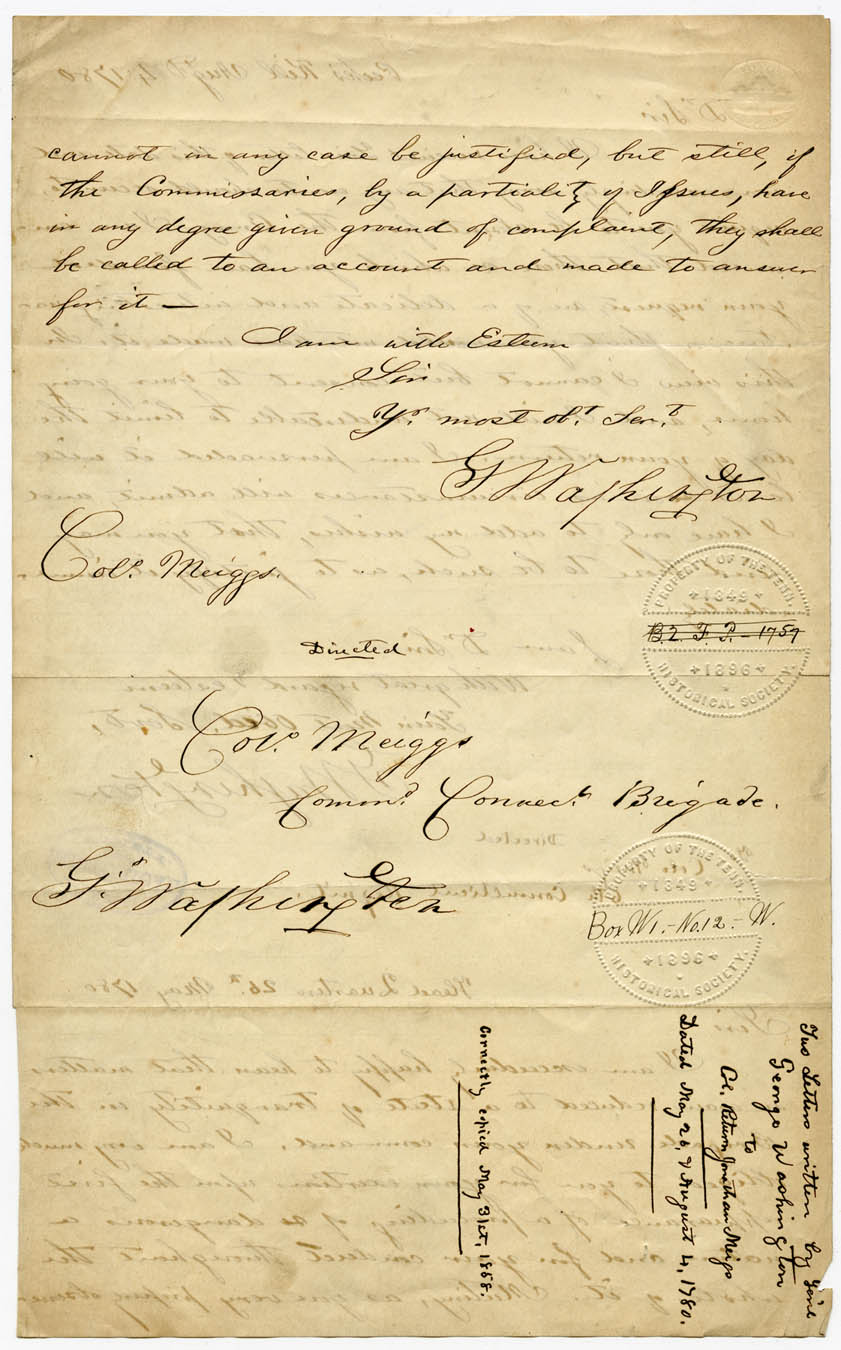 cannot in any case be justified, but still, if
the Commissaries, by a partiality of Issues, have
in any degree given ground of complaint, they shall
be called to an account and made to answer
for it —
I am with Esteem
Sir
Yr. most obt. Servt.
G Washington
Colo. Meiggs.
PROPERTY OF THE TENN.
1849
B.2. F. P. – 1759
1896
HISTORICAL SOCIETY.
Directed
Colo. Meiggs
Commd. Connect. Brigade.
Go. Washington
PROPERTY OF THE TENN.
1849
Box W1. – No. 12. – W.
1896
HISTORICAL SOCIETY.
Two Letters written by Gen'l
George Washington
to
Col. Return Jonathan Meigs
Dated May 26, & August 4, 1780.
Correctly copied May 31st, 1858.